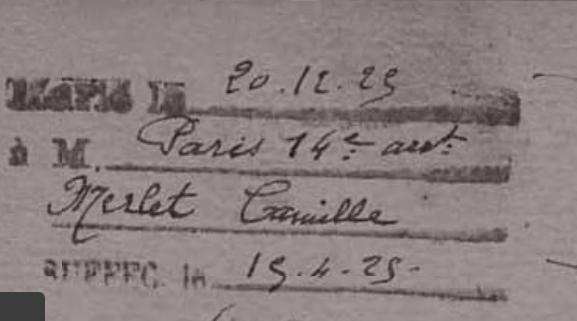 LE 20.12.25
à M. Paris 14e arrt.
Merlet Camille
le 15-4-25-